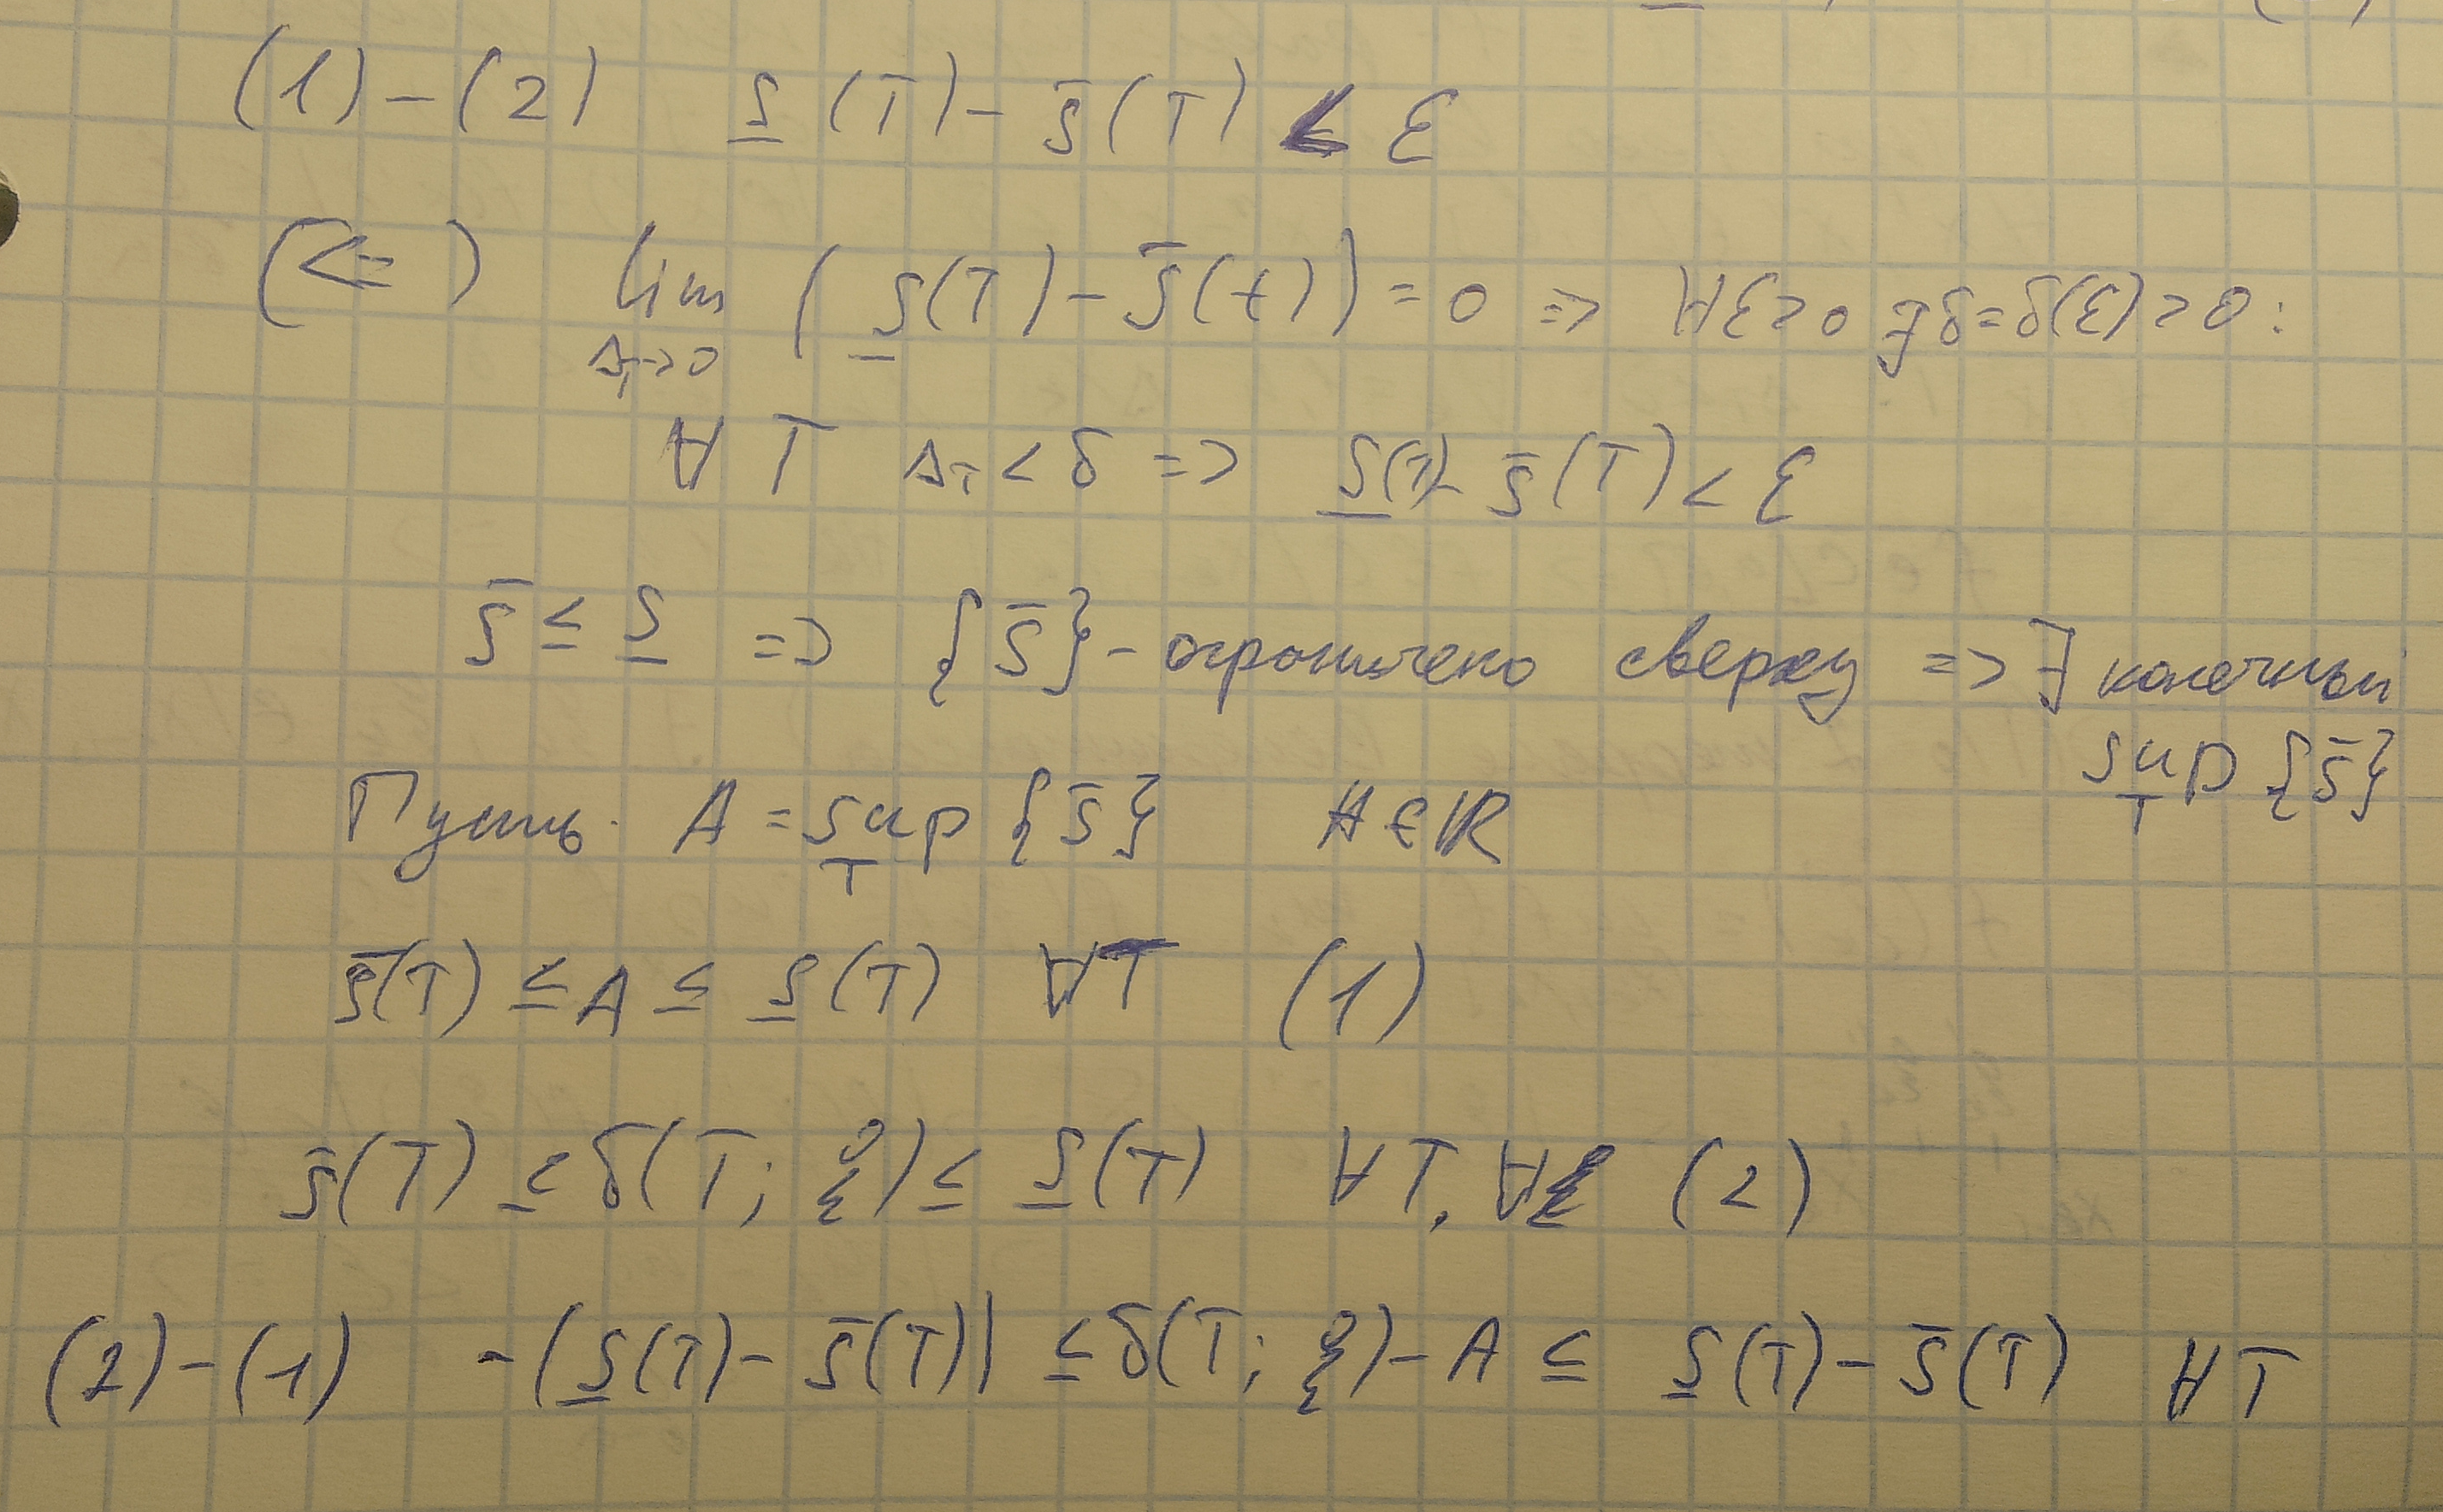 (1)-(2) S̲(T)- s̄(T) < ε
(<=) lim (S̲(T)- s̄(t))=0 => ∀ε>0 ∃δ=δ(ε)>0:
Δ_T->0
∀ T Δ_T < δ => S̲(T)- s̄(T) < ε
s̄ ≤ S̲ => {s̄}- ограничено сверху => ∃ конечный
sup {s̄}
T
Пусть A = sup {s̄} A∈ℝ
T
s̄(T) ≤ A ≤ S̲(T) ∀T (1)
s̄(T) ≤ δ(T; ξ) ≤ S̲(T) ∀T, ∀ξ (2)
(2)-(1) -(S̲(T)- s̄(T)) ≤ δ(T; ξ)- A ≤ S̲(T)- s̄(T) ∀T